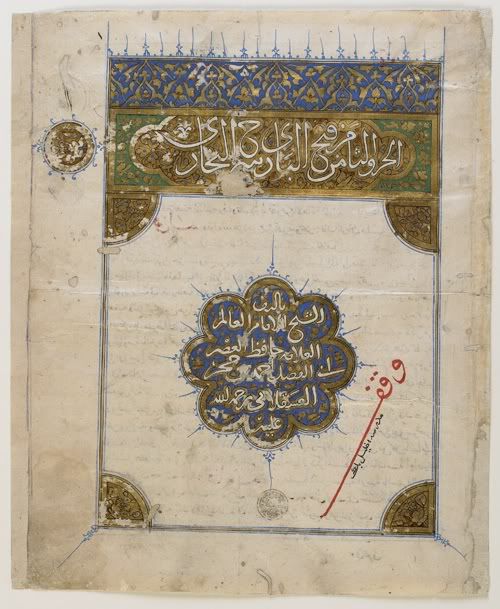 الجزو الثامن من فتح الباري بشرح البخاري
تأليف
الشيخ الامام العالم
العلامة حافظ العصر
ابي الفضل احمد بن حجر
العسقلاني رحمة الله
عليه
وقف